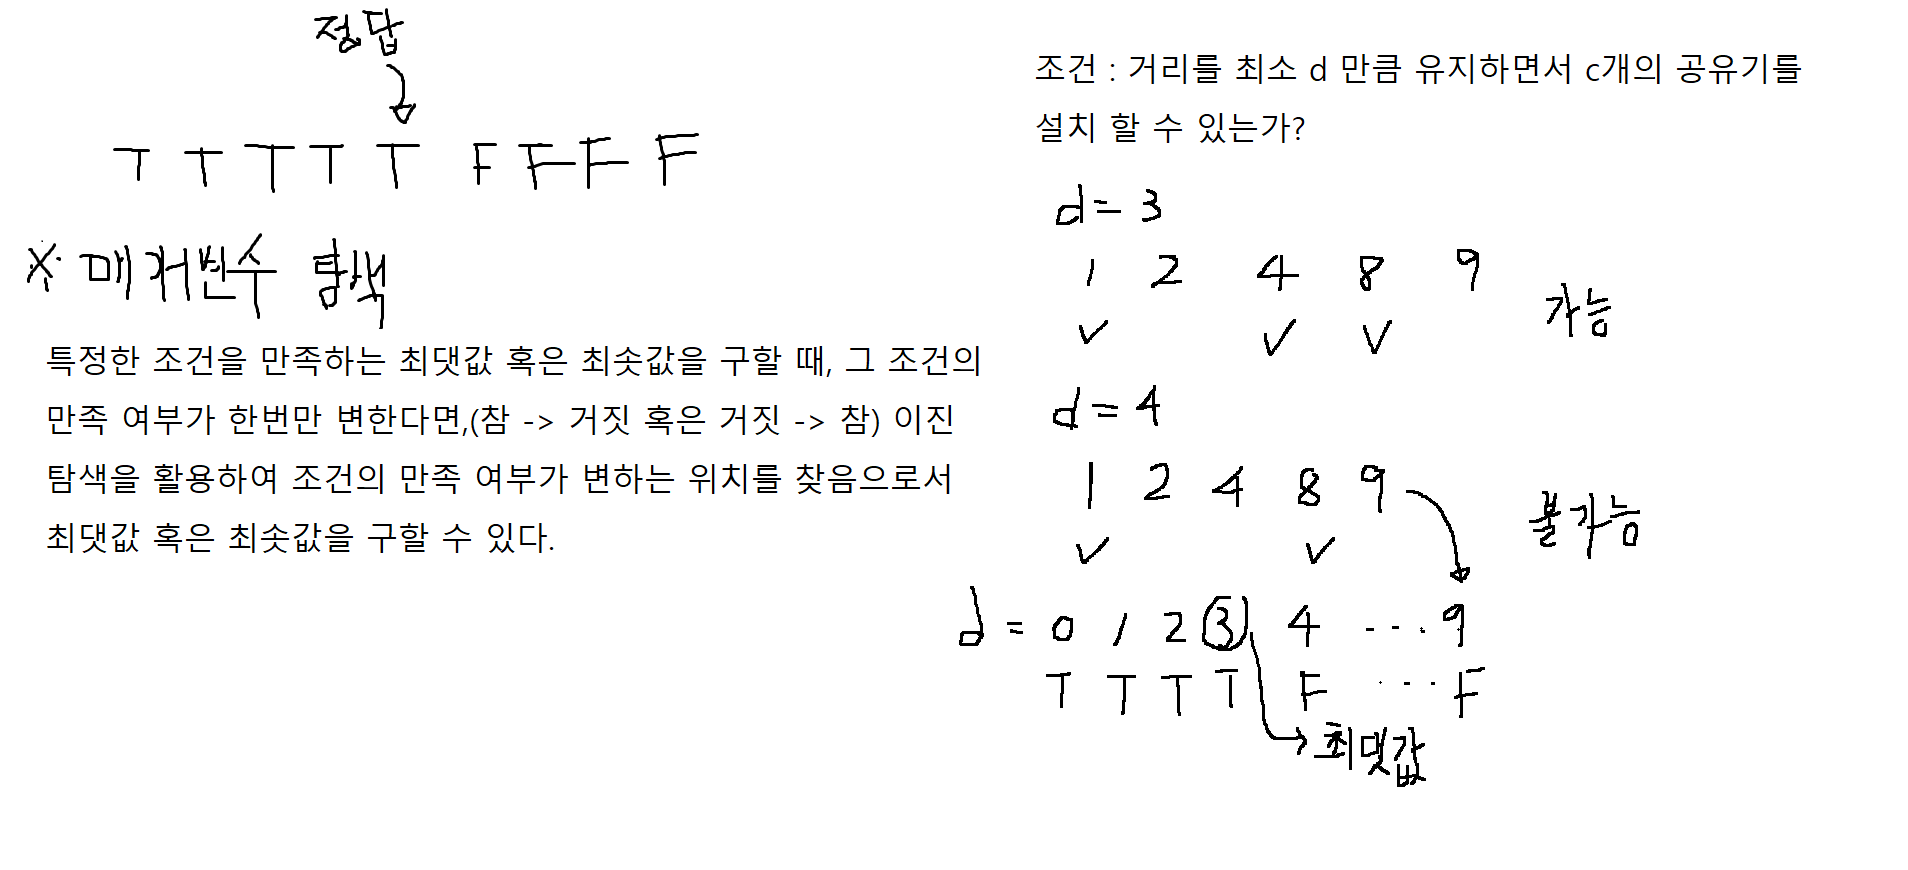 정답
T T T T T F F F F
※ 매개변수 탐색
특정한 조건을 만족하는 최댓값 혹은 최솟값을 구할 때, 그 조건의
만족 여부가 한번만 변한다면,(참 -> 거짓 혹은 거짓 -> 참) 이진
탐색을 활용하여 조건의 만족 여부가 변하는 위치를 찾음으로서
최댓값 혹은 최솟값을 구할 수 있다.
조건 : 거리를 최소 d 만큼 유지하면서 c개의 공유기를
설치 할 수 있는가?
d = 3
1 2 4 8 9
✓ ✓ ✓
가능
d = 4
1 2 4 8 9
✓ ✓
불가능
d = 0 1 2 3 4 ... 9
T T T T F ... F
최댓값